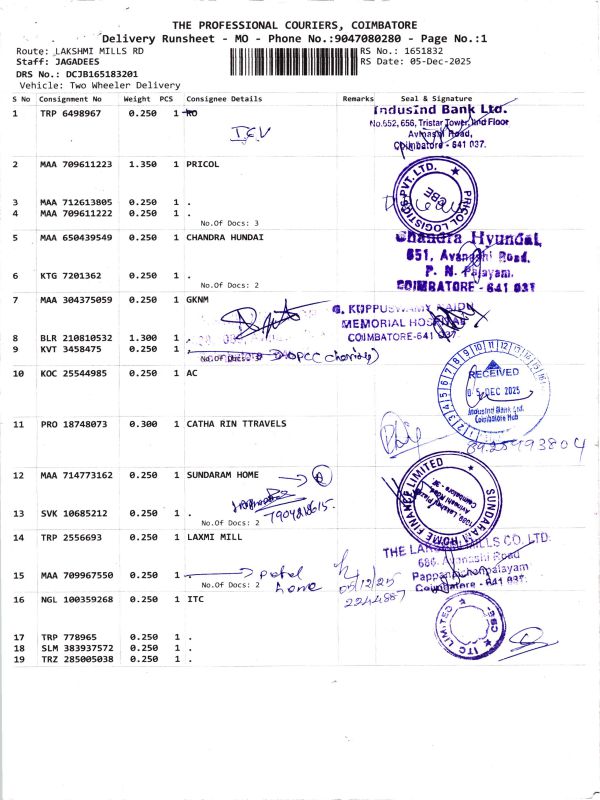 THE PROFESSIONAL COURIERS, COIMBATORE
Delivery Runsheet - MO - Phone No.:9047080280 - Page No.:1
Route: LAKSHMI MILLS RD
Staff: JAGADEES
DRS No.: DCJB165183201
Vehicle: Two Wheeler Delivery
RS No.: 1651832
RS Date: 05-Dec-2025
S No Consignment No Weight PCS Consignee Details Remarks Seal & Signature
1 TRP 6498967 0.250 1 RO
IndusInd Bank Ltd.
No.652, 656, Tristar Tower, IInd Floor
Avinashi Road,
Coimbatore - 641 037.
2 MAA 709611223 1.350 1 PRICOL
PRICOL LOGISTICS PVT. LTD.
CBE
3 MAA 712613805 0.250 1 .
4 MAA 709611222 0.250 1 .
No.Of Docs: 3
5 MAA 650439549 0.250 1 CHANDRA HUNDAI
Chandra Hyundai,
651, Avanashi Road,
P. N. Palayam,
COIMBATORE - 641 037
6 KTG 7201362 0.250 1 .
No.Of Docs: 2
7 MAA 304375059 0.250 1 GKNM
G. KUPPUSWAMY NAIDU
MEMORIAL HOSPITAL
COIMBATORE-641 037.
8 BLR 210810532 1.300 1 .
9 KVT 3458475 0.250 1 .
No.Of Docs:
10 KOC 25544985 0.250 1 AC
RECEIVED
05 DEC 2025
IndusInd Bank Ltd.
Coimbatore Hub
11 PRO 18748073 0.300 1 CATHA RIN TTRAVELS
8925493804
12 MAA 714773162 0.250 1 SUNDARAM HOME
SUNDARAM HOME FINANCE LIMITED
7904818615.
13 SVK 10685212 0.250 1 .
No.Of Docs: 2
14 TRP 2556693 0.250 1 LAXMI MILL
THE LAKSHMI MILLS CO. LTD.
686, Avanashi Road
Pappanaickenpalayam
Coimbatore - 641 037.
15 MAA 709967550 0.250 1
No.Of Docs: 2
05/12/25
2244887
16 NGL 100359268 0.250 1 ITC
ITC LIMITED
CBE-
17 TRP 778965 0.250 1 .
18 SLM 383937572 0.250 1 .
19 TRZ 285005038 0.250 1 .